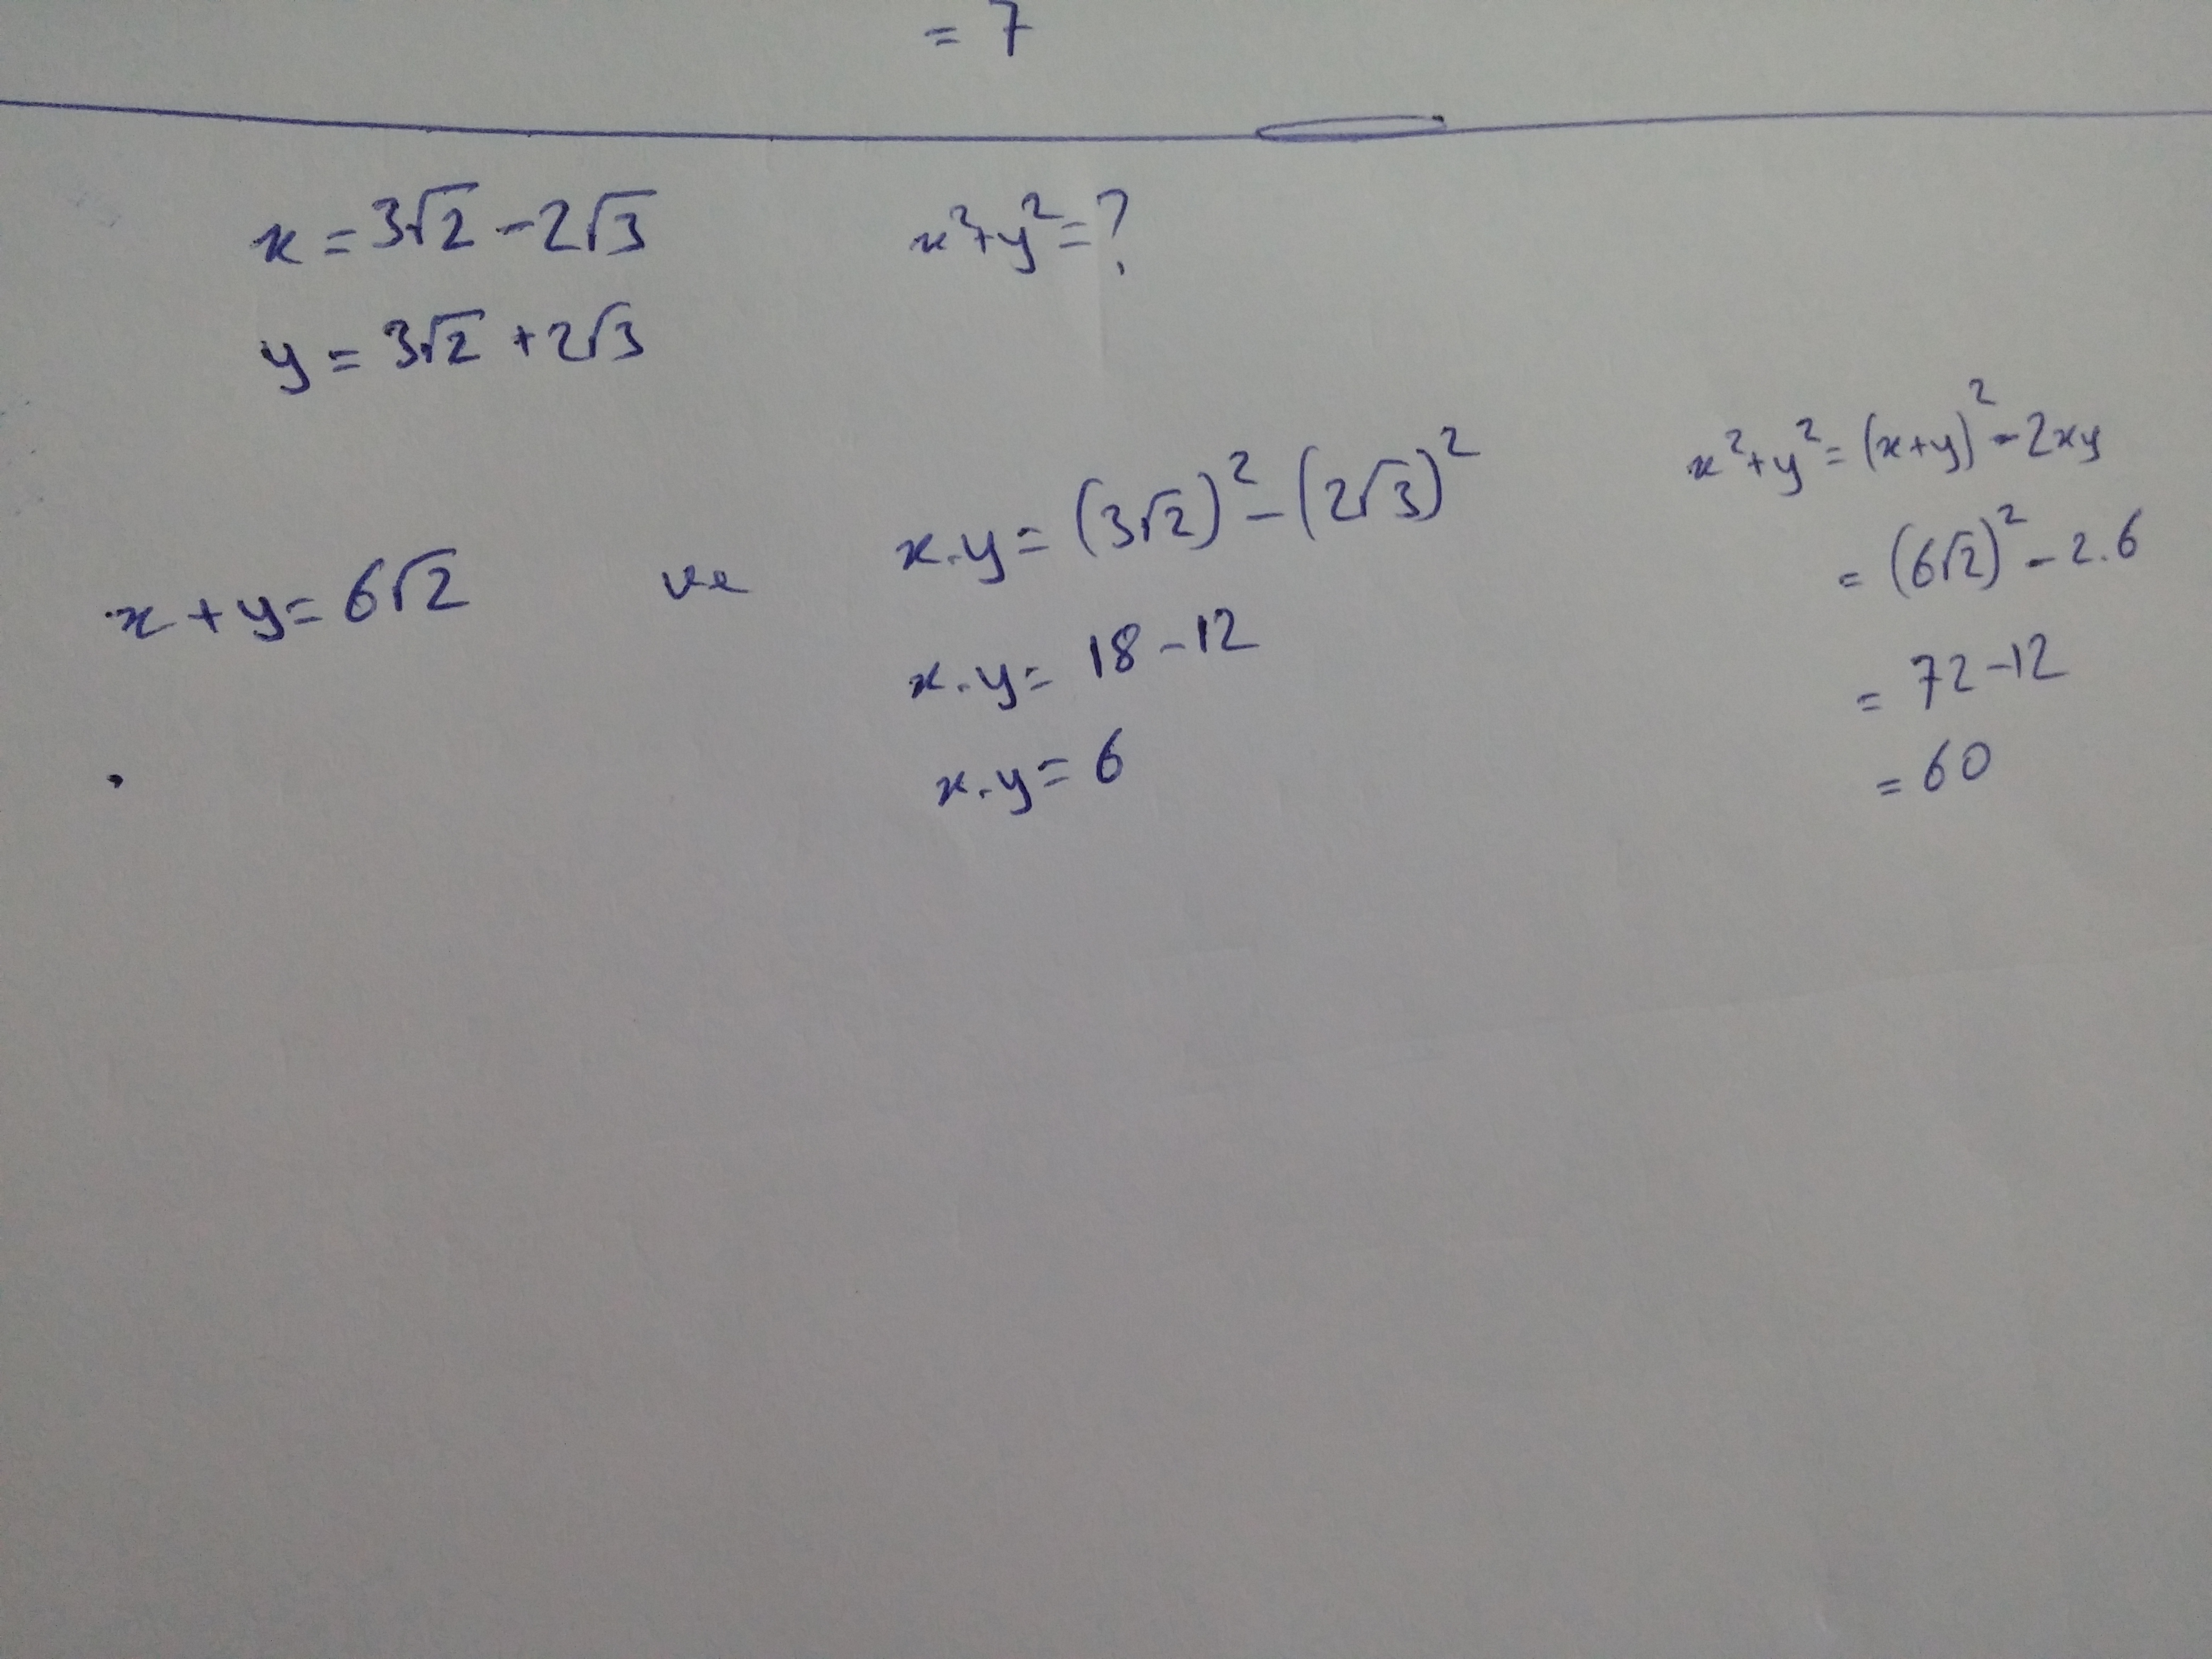 = 7
x = 3√2 - 2√3
x² + y² = ?
y = 3√2 + 2√3
x + y = 6√2
ve
x.y = (3√2)² - (2√3)²
x.y = 18 - 12
x.y = 6
x² + y² = (x+y)² - 2xy
= (6√2)² - 2.6
= 72 - 12
= 60